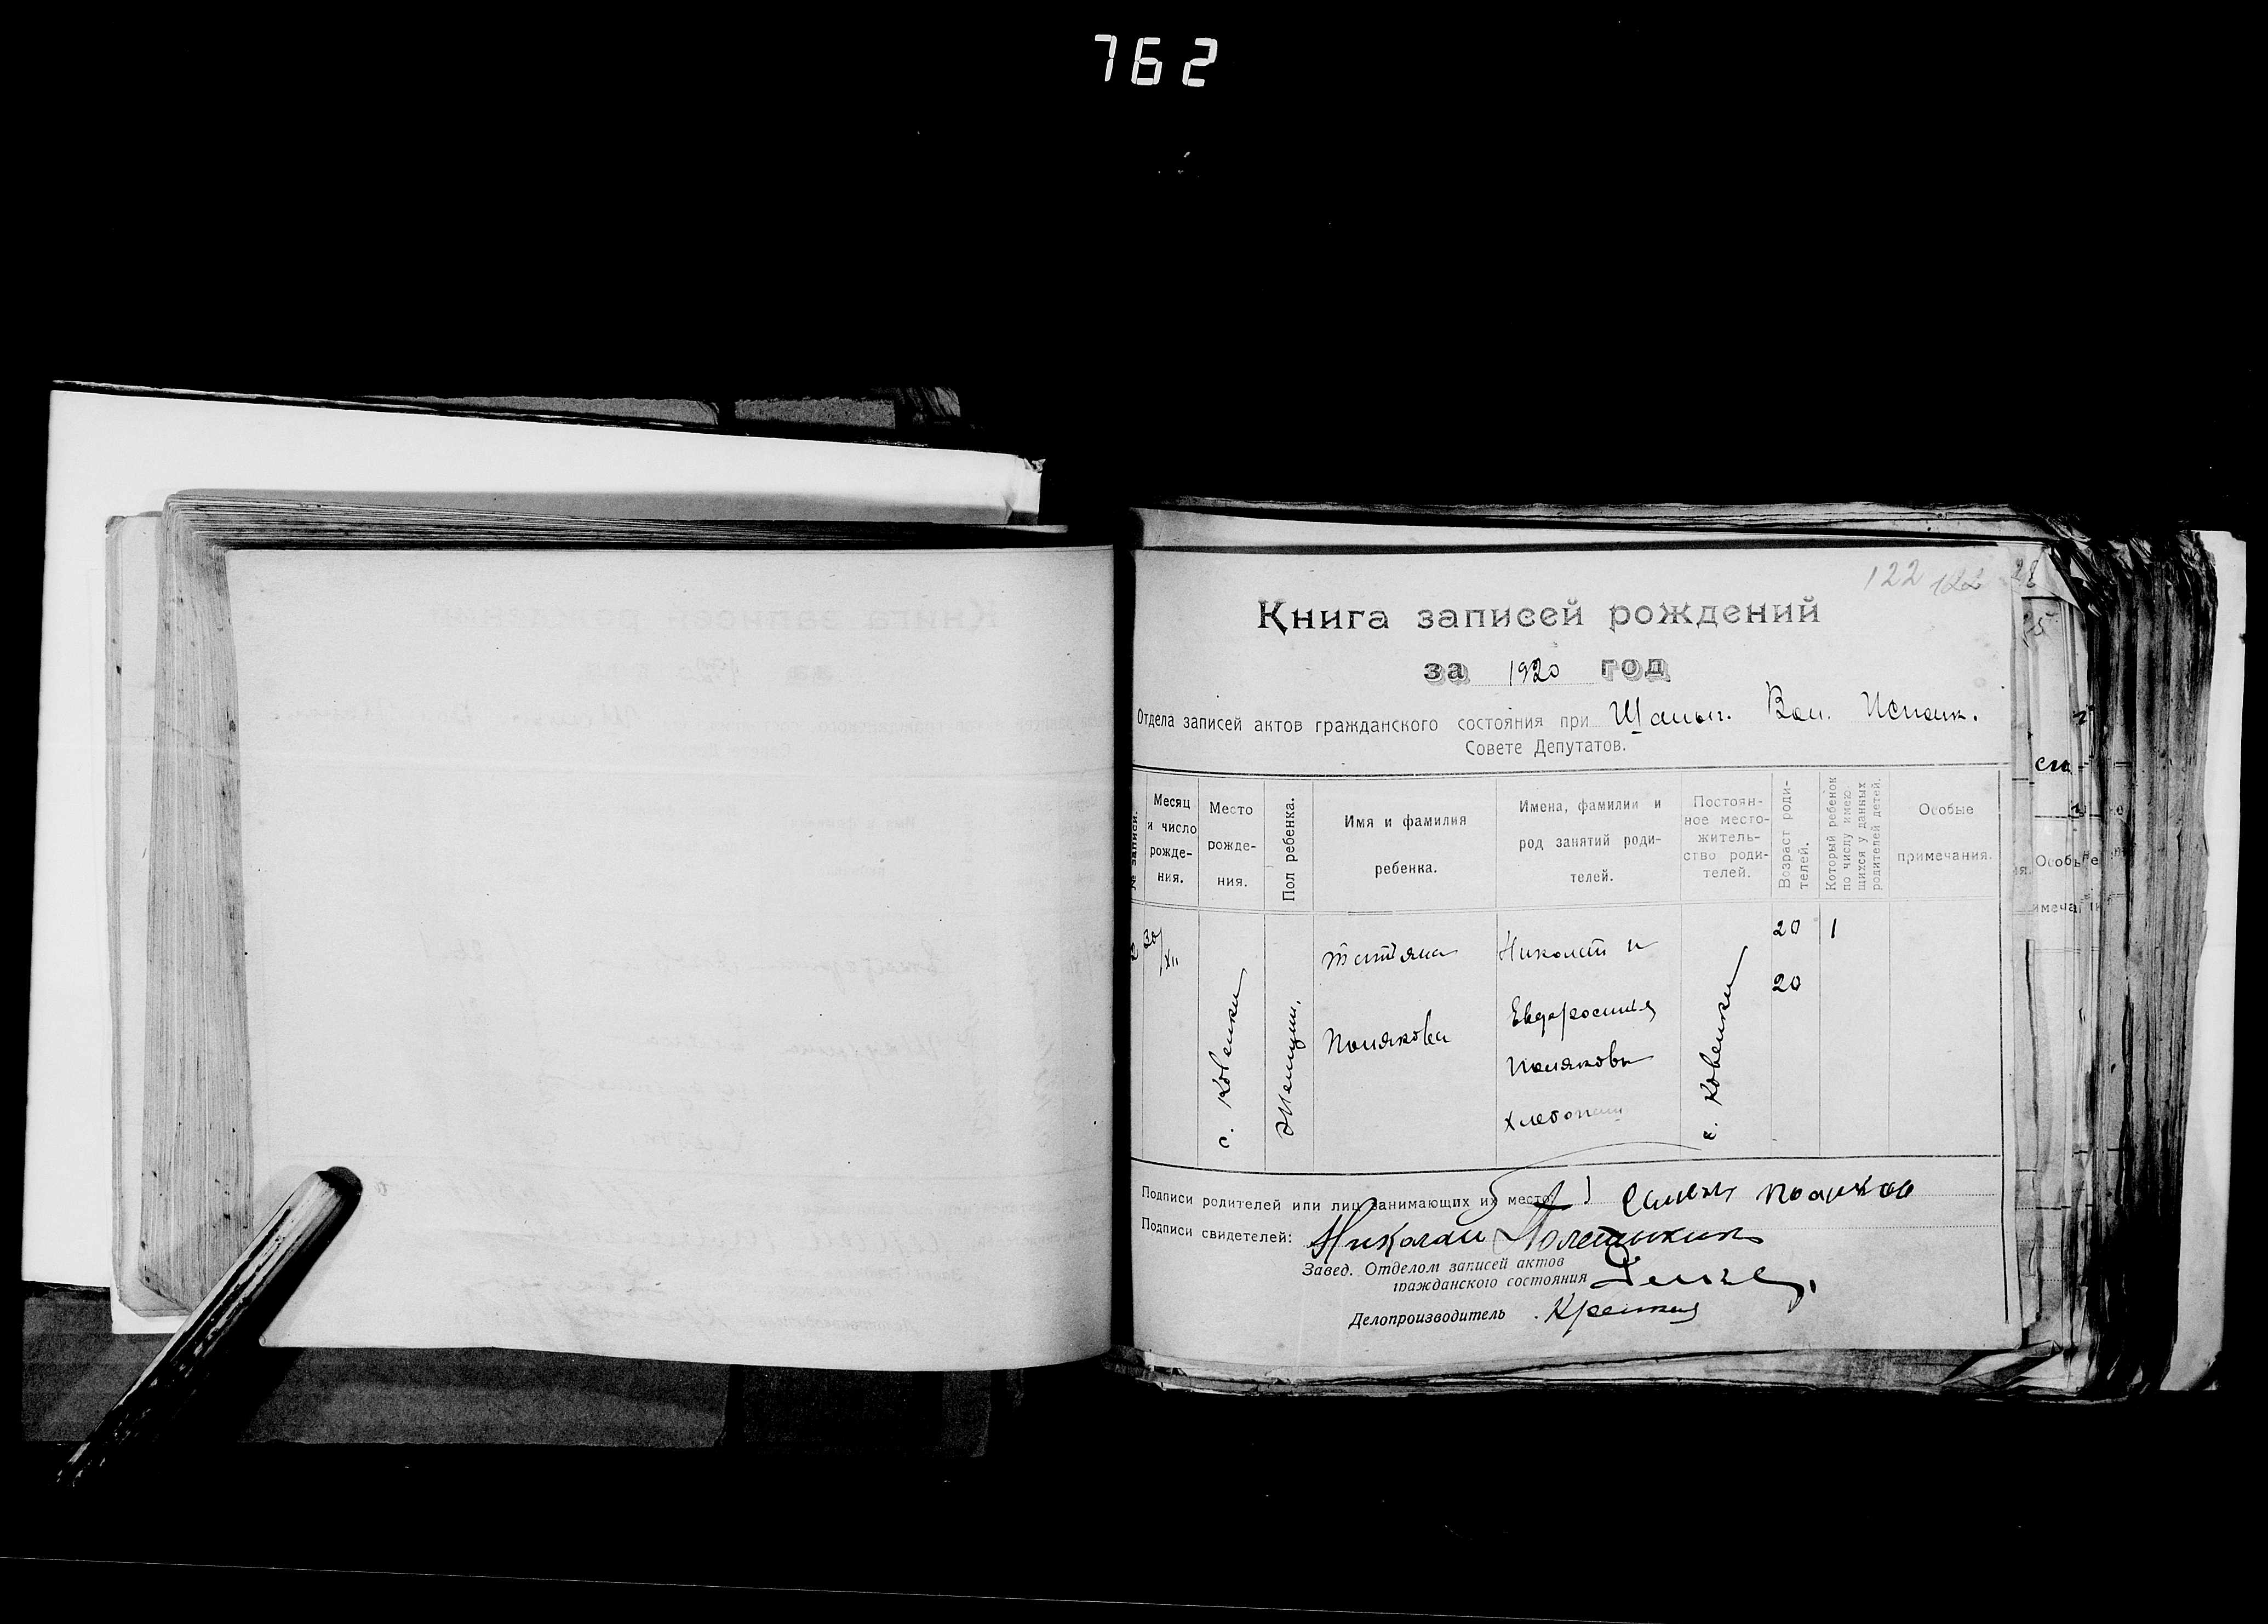 762
122 122
Книга записей рождений
за 1920 год
Отдела записей актов гражданского состояния при Шаныг. Вол. Исполк.
Совете Депутатов.
№ записи.
Месяц и число рожде-
ния.
Место
рожде-
ния.
Пол ребенка.
Имя и фамилия
ребенка.
Имена, фамилии и
род занятий роди-
телей.
Постоян-
ное место-
житель-
ство роди-
телей.
Возраст роди-
телей.
Который ребенок
по числу имею-
щихся у данных
родителей детей.
Особые
примечания.
30/XII
с. Ковенки
Женщин.
Татьяна
Полякова
Николай и
Евдросинья
Поляковы
хлебопаш
с. Ковенки
20
20
1
Подписи родителей или лиц занимающих их место:
Подписи свидетелей: Николай
Завед. Отделом записей актов
гражданского состояния
Делопроизводитель